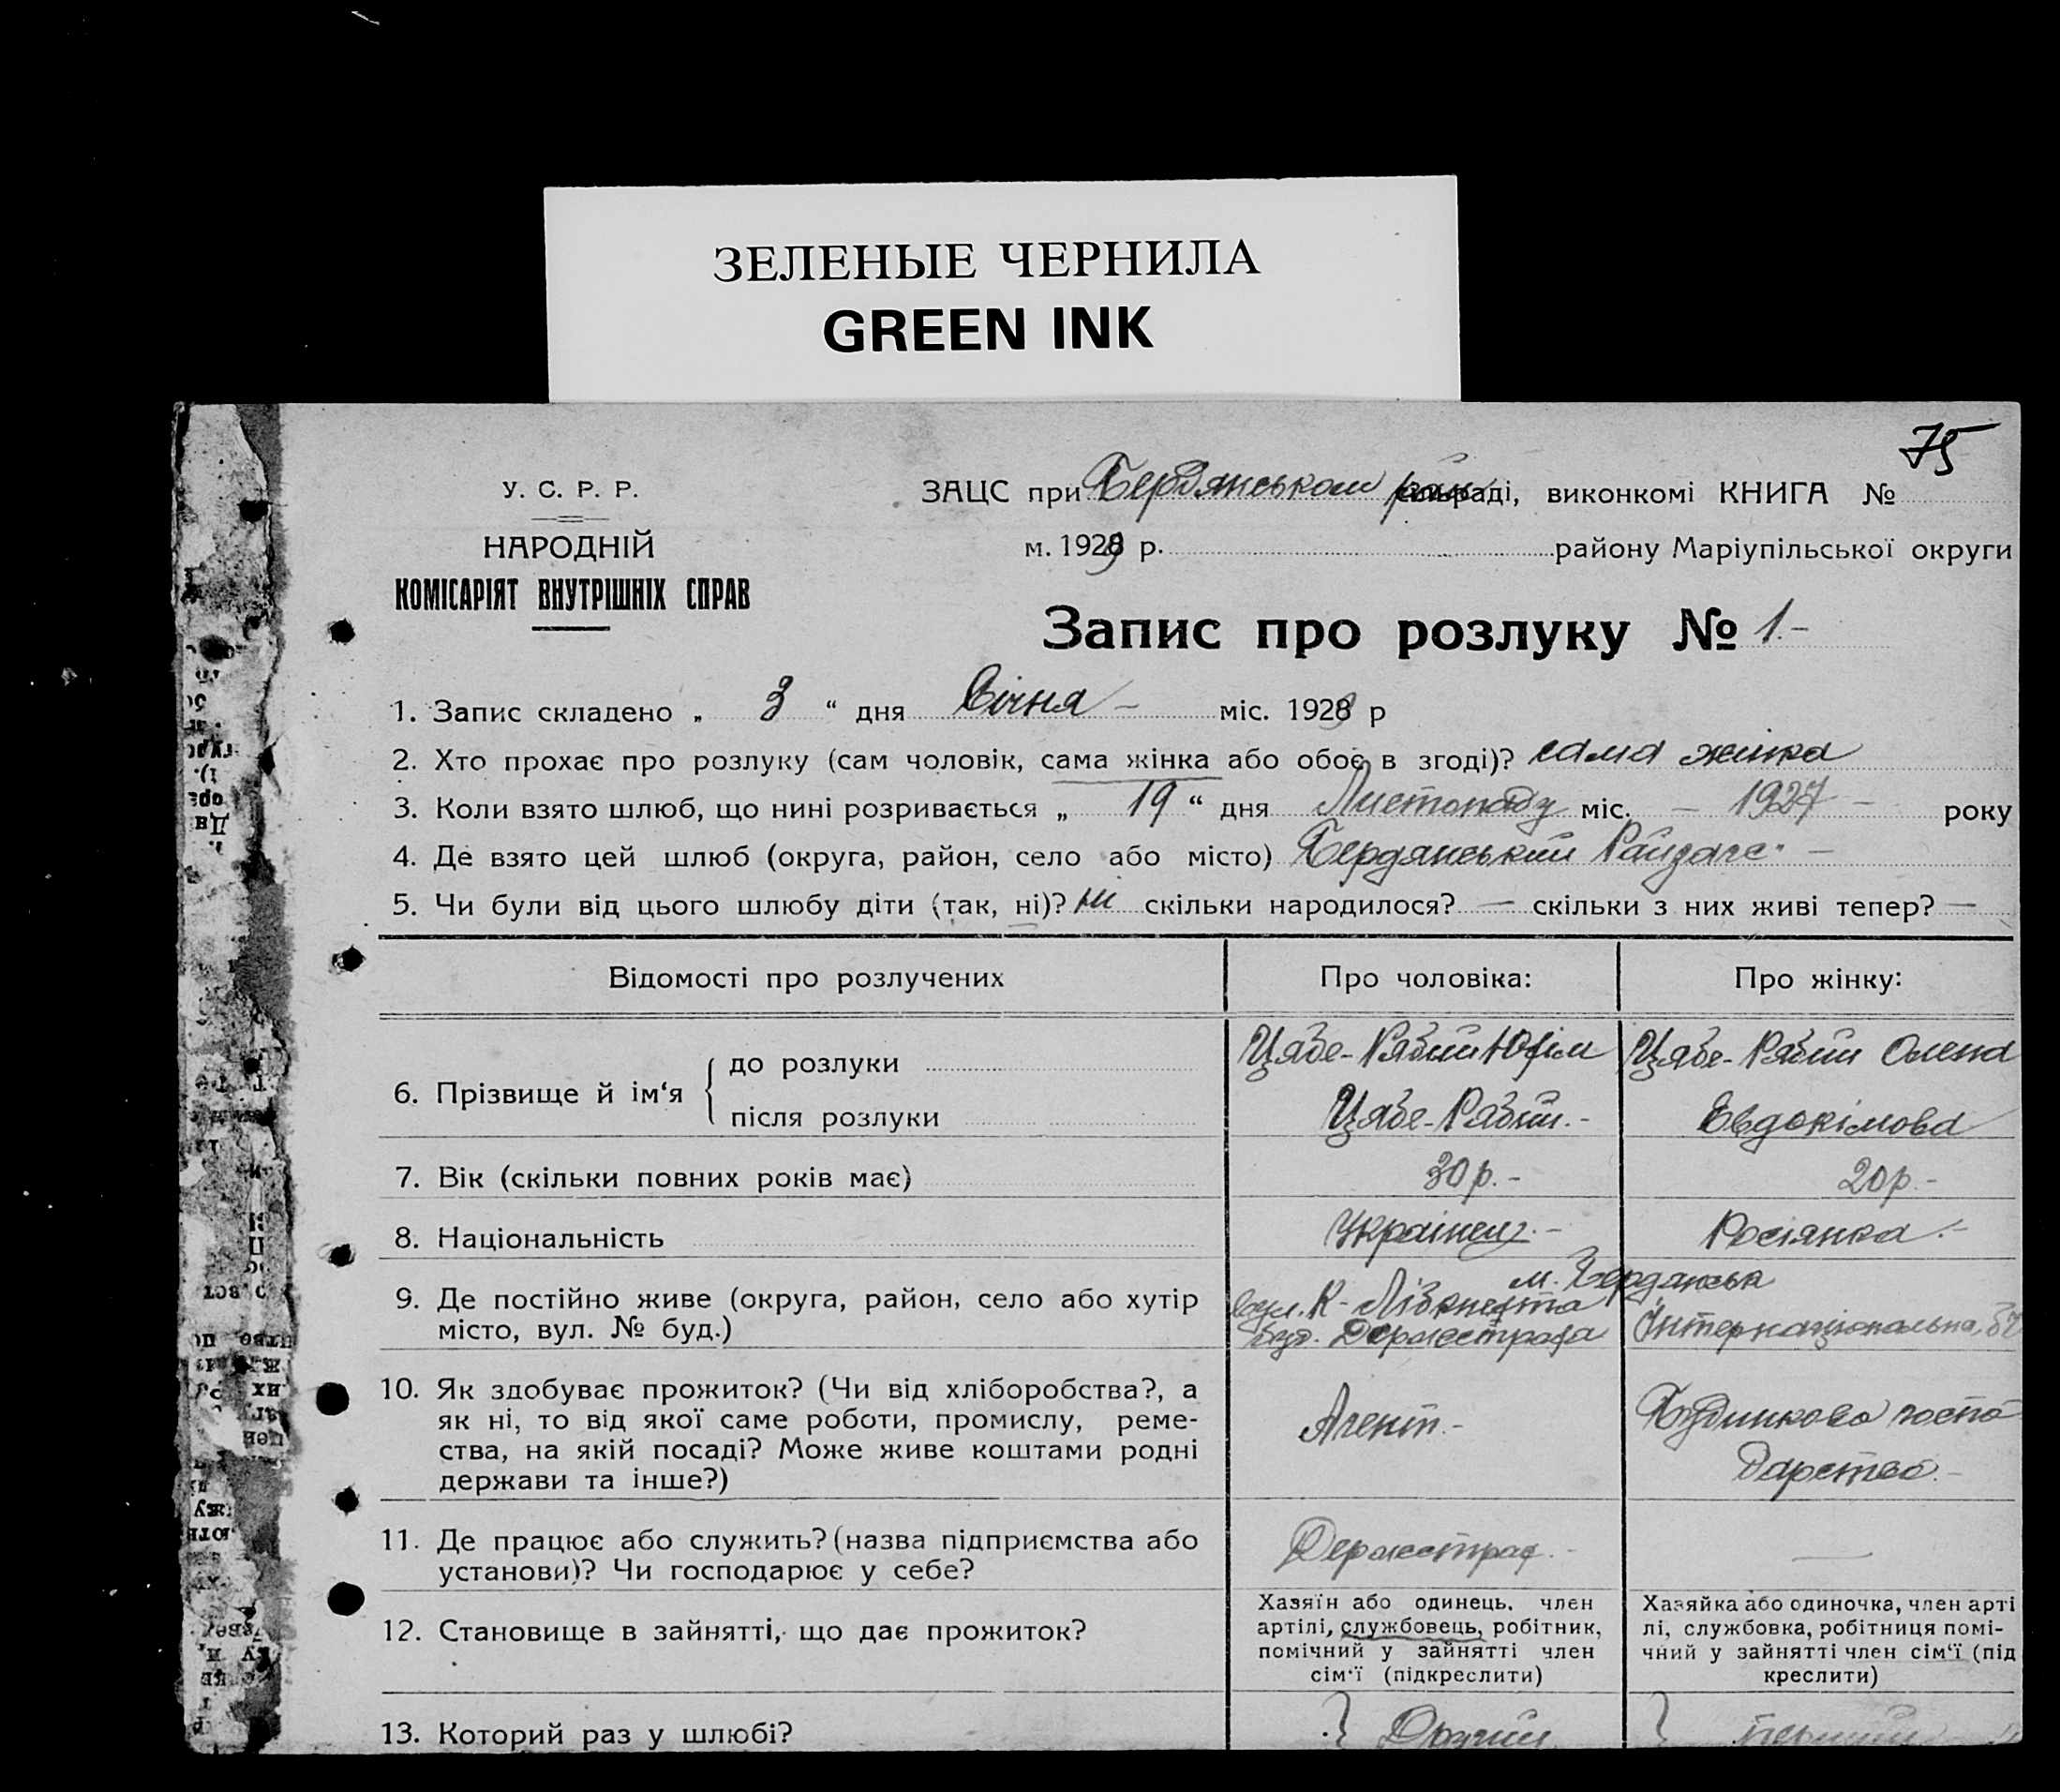 ЗЕЛЕНЫЕ ЧЕРНИЛА
GREEN INK
75
У. С. Р. Р.
НАРОДНІЙ
КОМІСАРІЯТ ВНУТРІШНІХ СПРАВ
ЗАЦС при Бердянськом рай раді, виконкомі КНИГА №
м. 1929 р. району Маріупільської округи
Запис про розлуку № 1.-
1. Запис складено „ 3 “ дня Січня - міс. 1929 р
2. Хто прохає про розлуку (сам чоловік, сама жінка або обоє в згоді)? сама жінка
3. Коли взято шлюб, що нині розривається „ 19 “ дня Листопаду міс. - 1927 - року
4. Де взято цей шлюб (округа, район, село або місто) Бердянський Райзагс. -
5. Чи були від цього шлюбу діти (так, ні)? ні скільки народилося? — скільки з них живі тепер? —
Відомості про розлучених Про чоловіка: Про жінку:
6. Прізвище й ім‘я { до розлуки Цабе-Рябий Юфім Цабе-Рябий Олена
після розлуки Цабе-Рябий.- Евдокімова
7. Вік (скільки повних років має) 30 р.- 20 р.-
8. Національність Українец.- Росіянка.-
9. Де постійно живе (округа, район, село або хутір місто, вул. № буд.)
м. Бердянськ
вул. К-Лібкнехта
буд. Держстраха
Інтернаціональна,
10. Як здобуває прожиток? (Чи від хліборобства?, а
як ні, то від якої саме роботи, промислу, реме-
ства, на якій посаді? Може живе коштами родні
держави та інше?)
Агент.-
Будинкове госпо
дарство.-
11. Де працює або служить? (назва підприємства або
установи)? Чи господарює у себе?
Держстрах.- —
12. Становище в зайнятті, що дає прожиток?
Хазяїн або одинець. член
артілі, службовець, робітник,
помічний у зайнятті член
сім‘ї (підкреслити)
Хазяйка або одиночка, член арті
лі, службовка, робітниця помі-
чний у зайнятті член сім‘ї (під
креслити)
13. Которий раз у шлюбі? } Другий } Перший